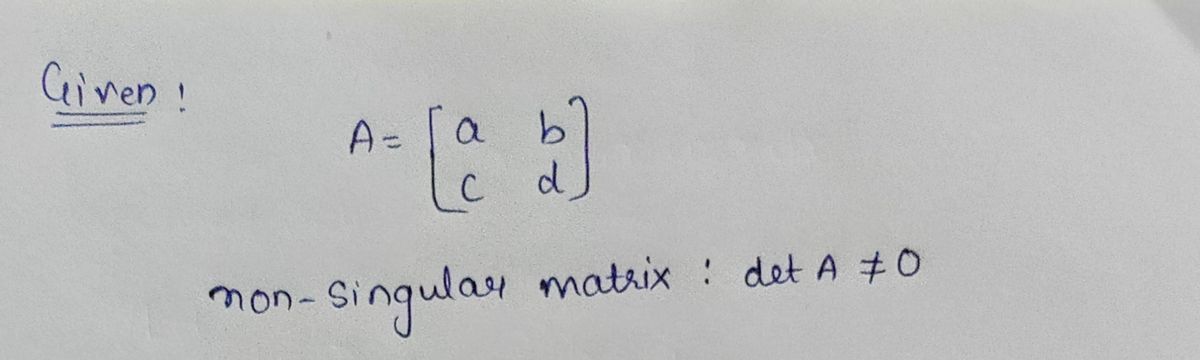 Given :
A = [a b
c d]
non-singular matrix : det A ≠ 0